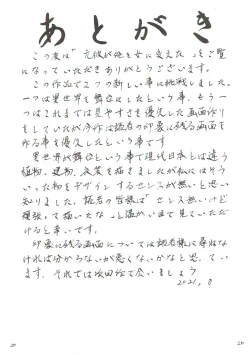 あとがき
この度は「元彼が他を女に変えた」をご覧
になっていただきありがとうございます。
この作品で2つの新しい事に挑戦しました。
一つは異世界を舞台にしたという事、もう一
つはこれまでは見やすさを優先した画面作り
をしていたが今作は読者の印象に残る画面を
作る事を優先したという事です
異世界が舞台という事で現代日本とは違う
植物、建物、衣装を描きましたが私にはそう
いった物をデザインするセンスが無いと思い
知りました。読者の皆様は「センス無いけど
頑張って描いたな」と温かい目で見ていただ
けると幸いです。
印象に残る画面については読者様に尋ねな
ければ分からないが悪くないかなと思ってい
ます、それでは次回作で会いましょう
2021, 8